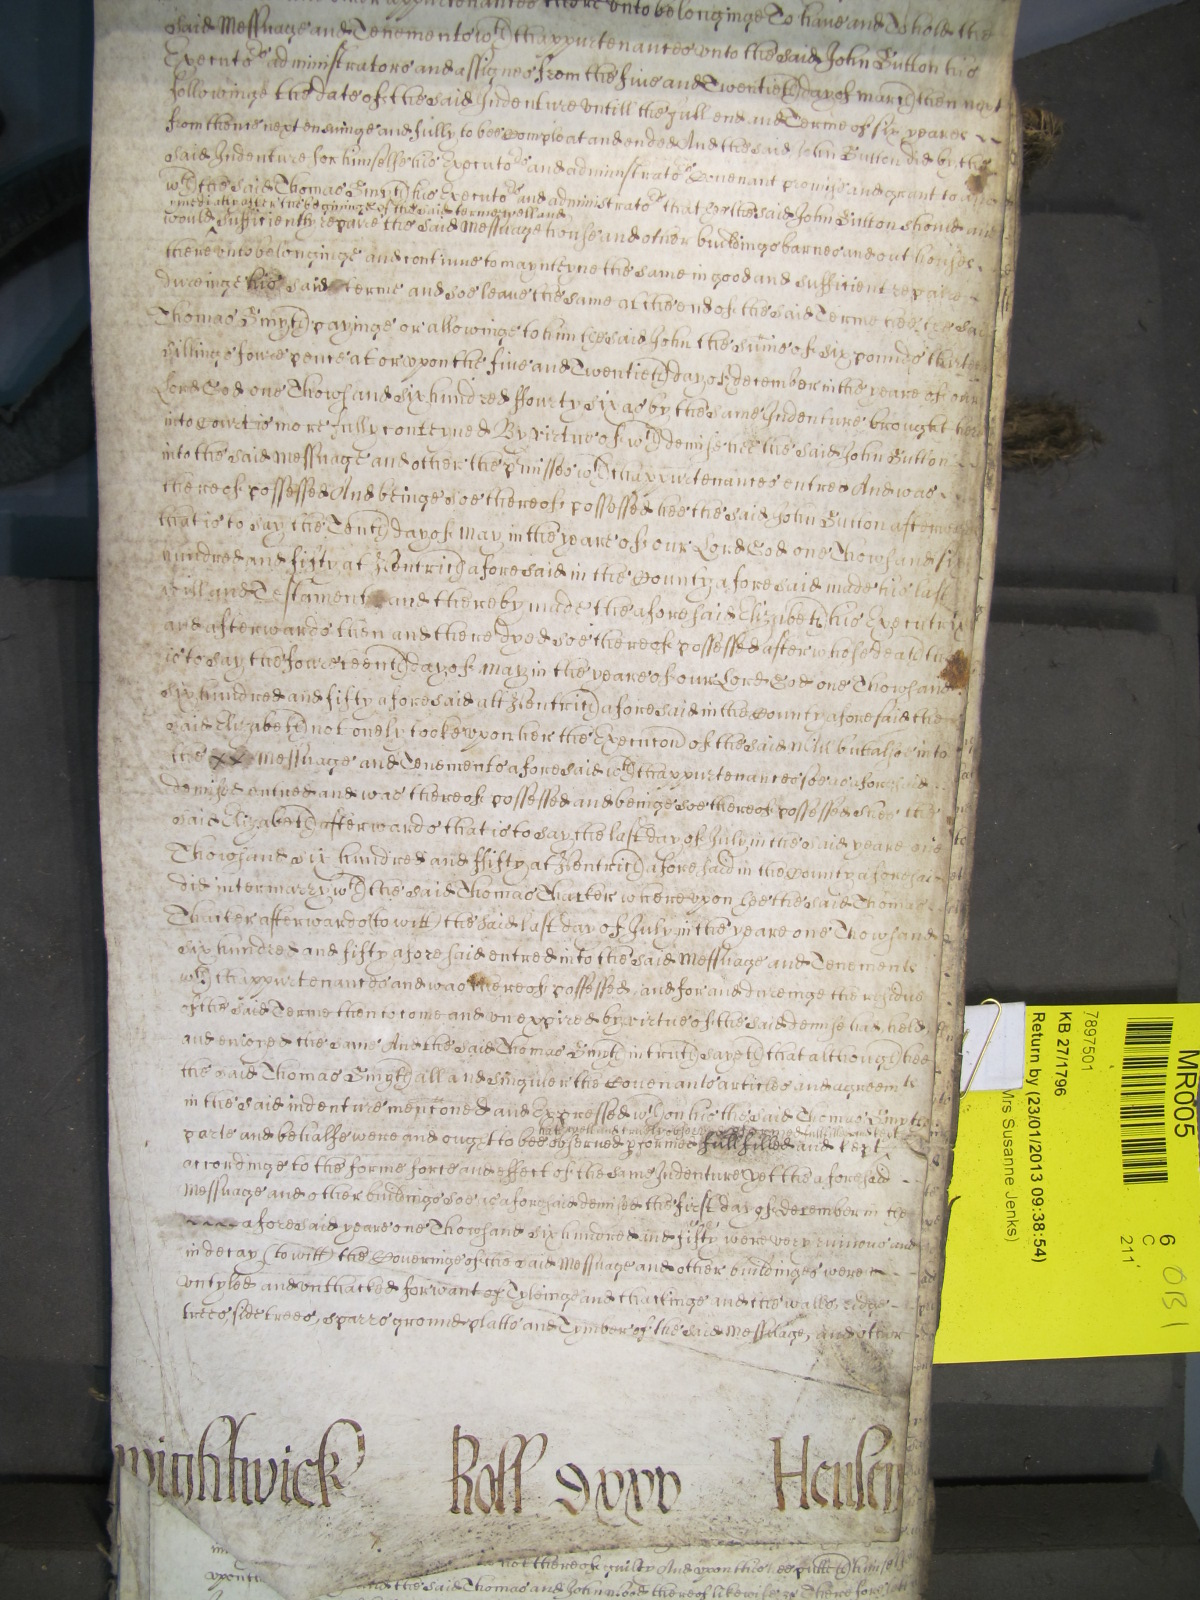 thereunto belonginge To have and To hold the
said Messuage and Tenements wth thappurtenances unto the said John Button his
Executors administrators and assignes from the five and Twentieth day of March then next
followinge the date of the said Indenture untill the full end and Terme of six yeares
from thence next ensuinge and fully to bee compleat and ended And the said John Button did by the
said Indenture for himselfe his Executors and administrators Covenant promise and grant to and
wth the said Thomas Smyth his Executors and administrators that hee the said John Button should and
imediatly after the beginninge of the said terme well and
would sufficiently repaire the said Messuage house and other buildings barnes and out houses
there unto belonginge and continue to maynteyne the same in good and sufficient repaire
dureinge his said terme and soe leave the same at the end of the said Terme hee the said
Thomas Smyth payinge or allowinge to him the said John the sume of six pounds thirteen
shillings foure pence at or upon the five and Twentieth day of december in the yeare of our
Lord God one Thowsand six hundred ffourty six as by the same Indenture brought here
into Court is more fully conteyned By virtue of wch demise hee the said John Button
into the said Messuage and other the pmisses wth thappurtenances entred And was
thereof possessed And beinge soe thereof possessed hee the said John Button afterwards
that is to say the Tenth day of May in the yeare of our Lord God one Thowsand six
hundred and fifty at Kentrich aforesaid in the County aforesaid made his last
will and Testament and thereby made the aforesaid Elizabeth his Executrix
and afterwards then and there dyed soe thereof possessed after whose death that
is to say the fowreteenth day of May in the yeare of our Lord God one Thowsand
six hundred and fifty aforesaid att Kentrich aforesaid in the County aforesaid the
said Elizabeth not onely tooke upon her the Execucon of the said Will but also into
the Messuage and Tenements aforesaid wth thappurtenances soe as aforesaid
demised entred and was thereof possessed and beinge soe thereof possessed shee the
said Elizabeth afterwards that is to say the last day of July in the said yeare one
Thowsand six hundred and ffifty at Kentrich aforesaid in the County aforesaid
did intermarry wth the said Thomas Thatcher whereupon hee the said Thomas
Thatcher afterwards to witt the said last day of July in the yeare one Thowsand
six hundred and fifty aforesaid entred into the said Messuage and Tenements
wth thappurtenances and was thereof possessed and for and dureinge the residue
of the said Terme then to come and unexpired by virtue of the said demise had held
and enioyed the same And the said Thomas Smyth in truth sayeth that although hee
the said Thomas Smyth all and singuler the Covenants articles and agreemts
in the said indenture mencioned and Expressed wch on his the said Thomas Smyth
parte and behalfe were and ought to bee observed pformed fullfilled and kept
accordinge to the forme force and effect of the same Indenture yet the aforesaid
Messuage and other buildings soe as aforesaid demised the first day of december in the
aforesaid yeare one Thowsand six hundred and fifty were very ruinous and
in decay (to witt) the Coveringe of the said Messuage and other buildinges were
untyled and unthacked for want of Tyleinge and thackinge and the walls, ridge
trees, side trees, sparrs ground platts and Tymber of the said Messuage, and other
Wightwick Roll 9xxv Henley
not thereof guilty And upon this hee putteth himselfe
upon the
and the said Thomas and John
thereof likewise Therefore
MR005
6
C
211
OB 1
7897501
KB 27/1796
Return by (23/01/2013 09:38:54)
Mrs Susanne Jenks)